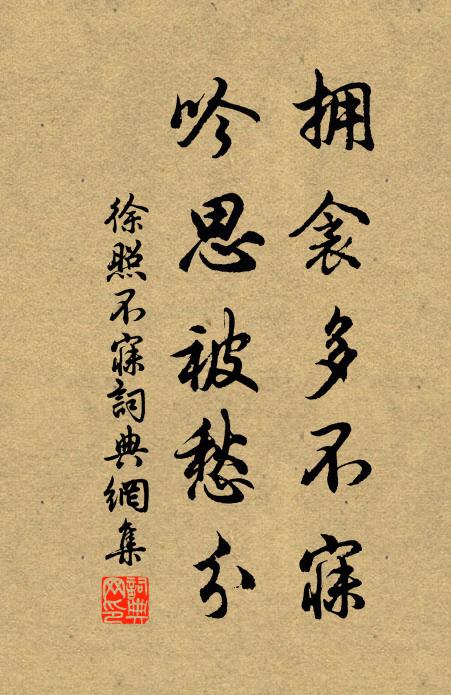 拥衾多不寐
吟思被愁分
徐照不寐詞典網集
詞典网印